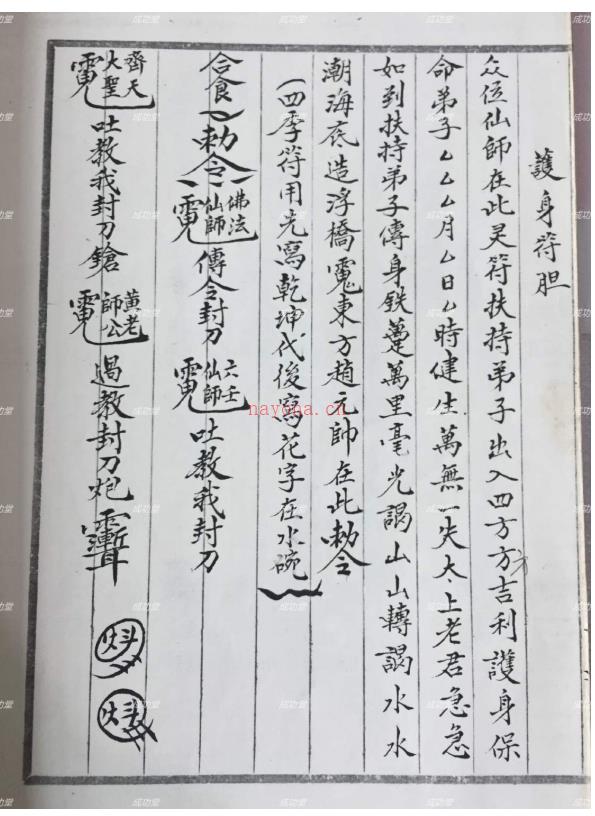 護身符胆
众位仙師在此灵符扶持弟子出入四方方吉利護身保
命弟子厶厶厶月厶日厶時健生萬無一失太上老君急急
如到扶持弟子傳身鉄蓬萬里毫光謁山山轉謁水水
潮海底造浮橋 東方趙元帥在此勅令
(四季符用先寫乾坤代後寫花字在水碗
合食 勅令 佛法仙師 傳令封刀 六壬仙師 吐教我封刀
齊天大聖 吐教我封刀鎗 黄老師公 過教封刀炮
nayona.cn
成功堂